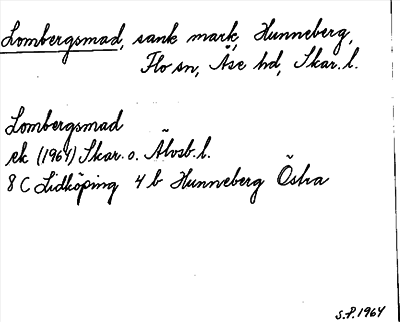 Lombergsmad, sank mark, Hunneberg,
Flo sn, Åse hd, Skar. l.
Lombergsmad
ek (1964) Skar. o. Älvsb. l.
8 C Lidköping 4 b Hunneberg Östra
S.P. 1964